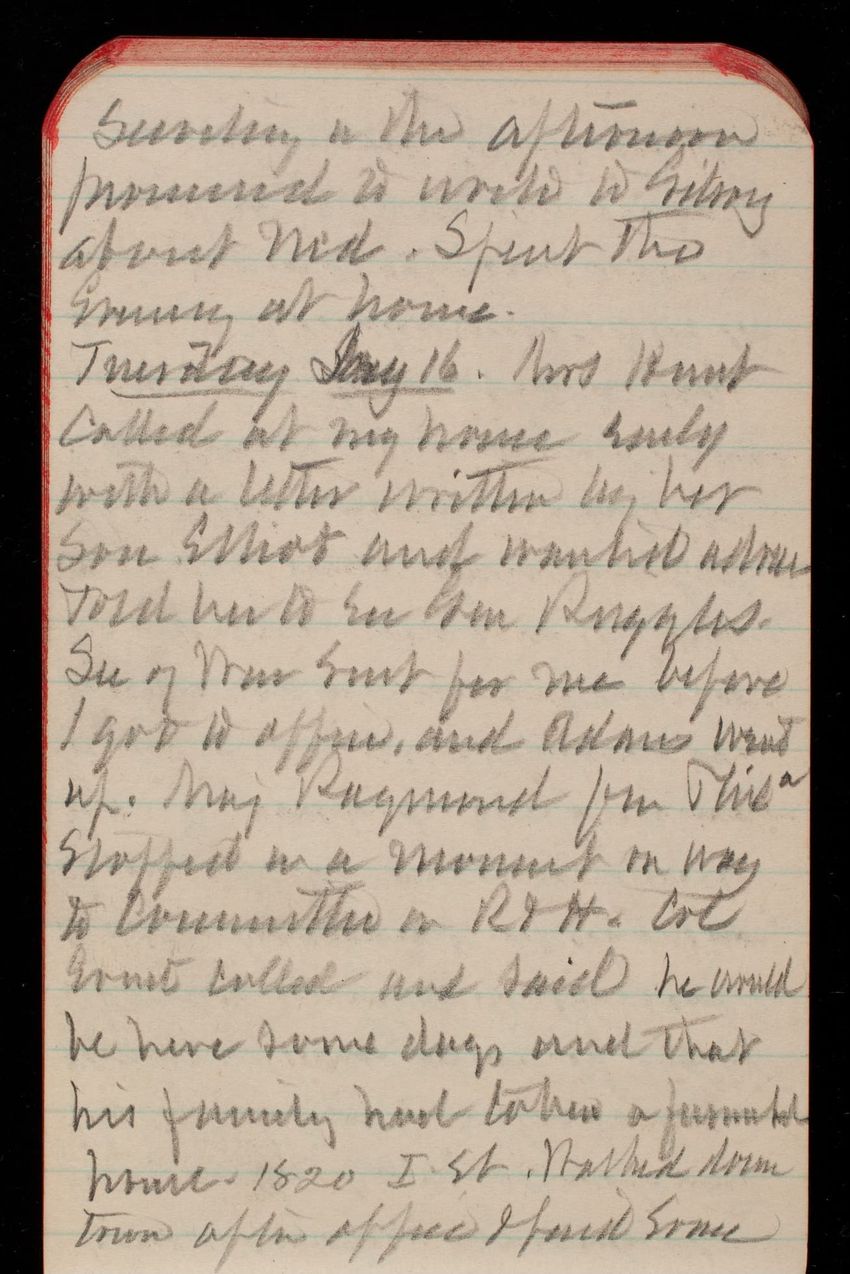 Secretary in the afternoon
promised to write to Gilroy
about Ned. Spent the
Evening at home.
Tuesday Jany 16. Mrs Hunt
Called at my house early
with a letter written by her
Son Elliot and wanted advice
Told her to see Gen Ruggles.
Sec of War Sent for me before
I got to office, and Adams went
up. Maj Raymond from Phila
Stopped in a moment on way
to Committee on R & H. Col
Ernst called and said he would
be here some days and that
his family had taken a furnished
house. 1820 I St. Walked down
town after office & paid Some